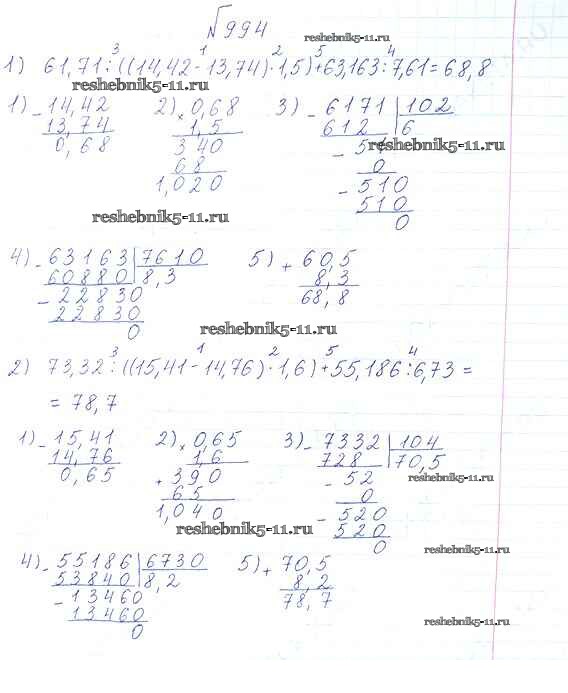 √994
reshebnik5-11.ru
1) 61,71 : ((14,42 - 13,74) · 1,5) + 63,163 : 7,61 = 68,8
reshebnik5-11.ru
1) - 14,42 2) × 0,68 3) - 6171 | 102
13,74 1,5 612 6
0,68 340 - 51 reshebnik5-11.ru
68 0
1,020 - 510
510
reshebnik5-11.ru 0
4) - 63163 | 7610 5) + 60,5
60880 8,3 8,3
- 22830 68,8
22830
0 reshebnik5-11.ru
2) 73,32 : ((15,41 - 14,76) · 1,6) + 55,186 : 6,73 =
= 78,7
1) - 15,41 2) × 0,65 3) - 7332 | 104
14,76 1,6 728 70,5
0,65 + 390 - 52 reshebnik5-11.ru
65 0
1,040 - 520
reshebnik5-11.ru 520
0
reshebnik5-11.ru
4) - 55186 | 6730 5) + 70,5
53840 8,2 8,2
- 13460 78,7
13460
0 reshebnik5-11.ru